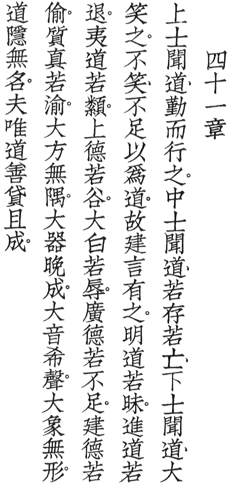 四十一章
上士聞道、勤而行之。中士聞道、若存若亡、下士聞道、大
笑之。不笑、不足以爲道。故建言有之。明道若昧。進道若
退。夷道若纇。上德若谷。大白若辱。廣德若不足。建德若
偷。質真若渝。大方無隅。大器晚成。大音希聲。大象無形。
道隱無名。夫唯道善貸且成。